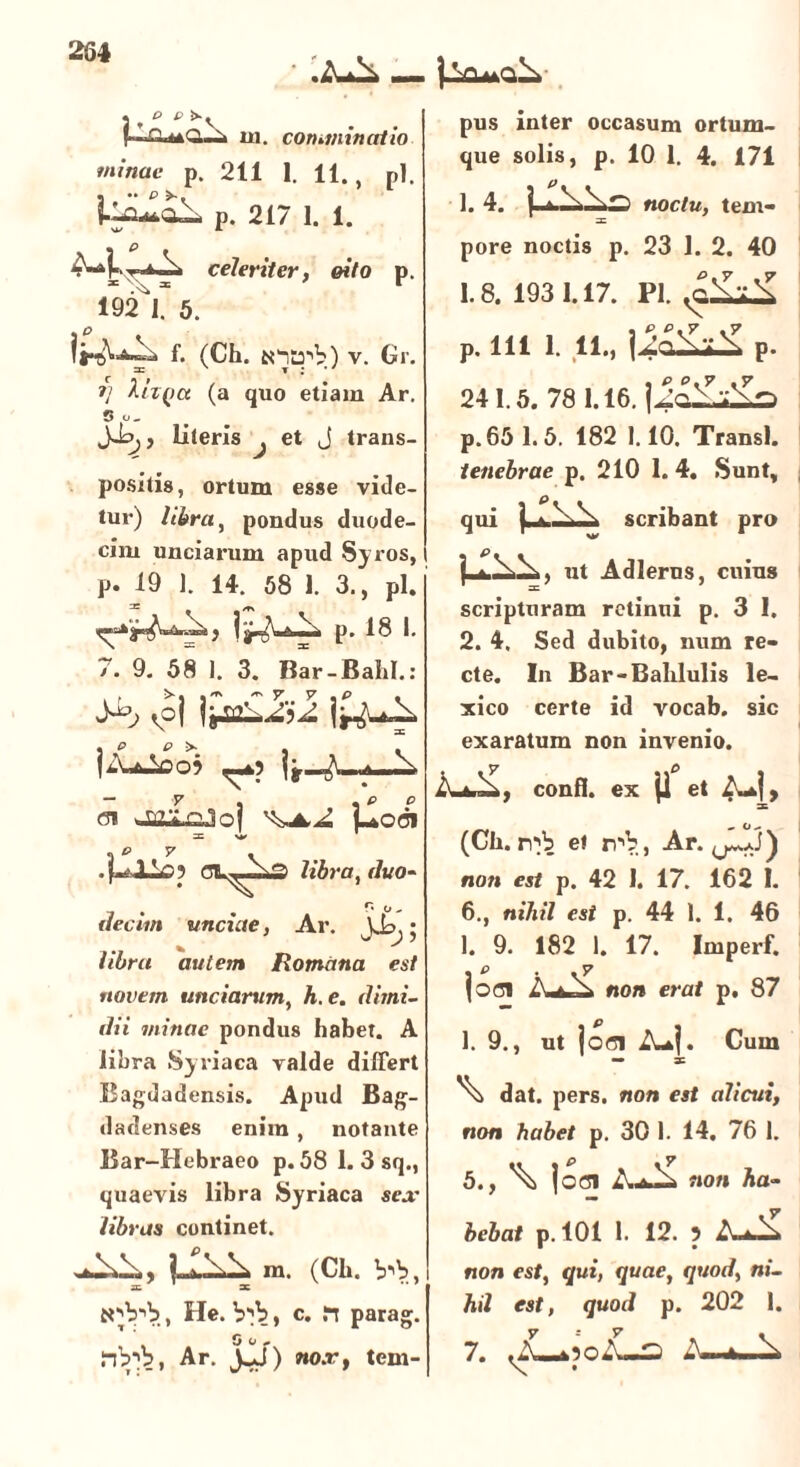 264
ܠܝܬ. — ܠܘܚܡܐ
m. comminatio
minae p. 211 l. 11., pl.
p. 217 l. 1.
celeriter, cito p.
192 l. 5.
ܠܝܛܪܐ f. (Ch. לִיטְרָא) v. Gr.
ἡ λίτρα (a quo etiam Ar.
رطل, literis ر et ل trans-
positis, ortum esse vide-
tur) libra, pondus duode-
cim unciarum apud Syros,
p. 19 l. 14. 58 l. 3., pl.
p. 18 l.
7. 9. 58 l. 3. Bar-Bahl.:
ܠܝܛܪܐ ܬܪܬܥܣܪܐ ܐܘܢ رطل
ܠܝܛܪܐ ܕܝܢ ܕܘܡܝܬܐ
ܗܘܝܐ ܬܫܥ ܐܘܢܩܝܣ ܗ
ܦܠܓܗ ܕܡܢܝܐ. libra, duo-
decim unciae, Ar. رطل;
libra autem Romana est
novem unciarum, h. e. dimi-
dii minae pondus habet. A
libra Syriaca valde differt
Bagdadensis. Apud Bag-
dadenses enim, notante
Bar-Hebraeo p. 58 l. 3 sq.,
quaevis libra Syriaca sex
libras continet.
ܠܠܝ, ܠܠܝܐ m. (Ch. לֵילֵ,
לֵילְיָא, He. לַיִל, c. ה parag.
לַיְלָה, Ar. لَيْل) nox, tem-
pus inter occasum ortum-
que solis, p. 10 l. 4. 171
l. 4. ܒܠܠܝܐ noctu, tem-
pore noctis p. 23 l. 2. 40
l. 8. 193 l. 17. Pl. ܠܝܠܘܢ
p. 111 l. 11., ܠܝܠܘܬܐ p.
24 l. 5. 78 l. 16. ܒܠܝܠܘܬܐ
p. 65 l. 5. 182 l. 10. Transl.
tenebrae p. 210 l. 4. Sunt,
qui ܠܠܝܐ scribant pro
ܠܠܝܐ, ut Adlerus, cuius
scripturam retinui p. 3 l.
2. 4. Sed dubito, num re-
cte. In Bar-Bahlulis le-
xico certe id vocab. sic
exaratum non invenio.
ܠܝܬ, confl. ex ܠܐ et ܐܝܬ,
(Ch. לית et לית, Ar. لَيْسَ)
non est p. 42 l. 17. 162 l.
6., nihil est p. 44 l. 1. 46
l. 9. 182 l. 17. Imperf.
ܠܝܬ ܗܘܐ non erat p. 87
l. 9., ut ܐܝܬ ܗܘܐ. Cum
ܠ dat. pers. non est alicui,
non habet p. 30 l. 14. 76 l.
5., ܠܝܬ ܗܘܐ ܠ non ha-
bebat p. 101 l. 12. ܠܝܬ ܕ
non est, qui, quae, quod, ni-
hil est, quod p. 202 l.
7.